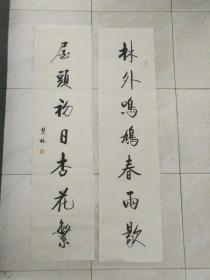 林外鳴鳩春雨歇
屋頭初日杏花繁